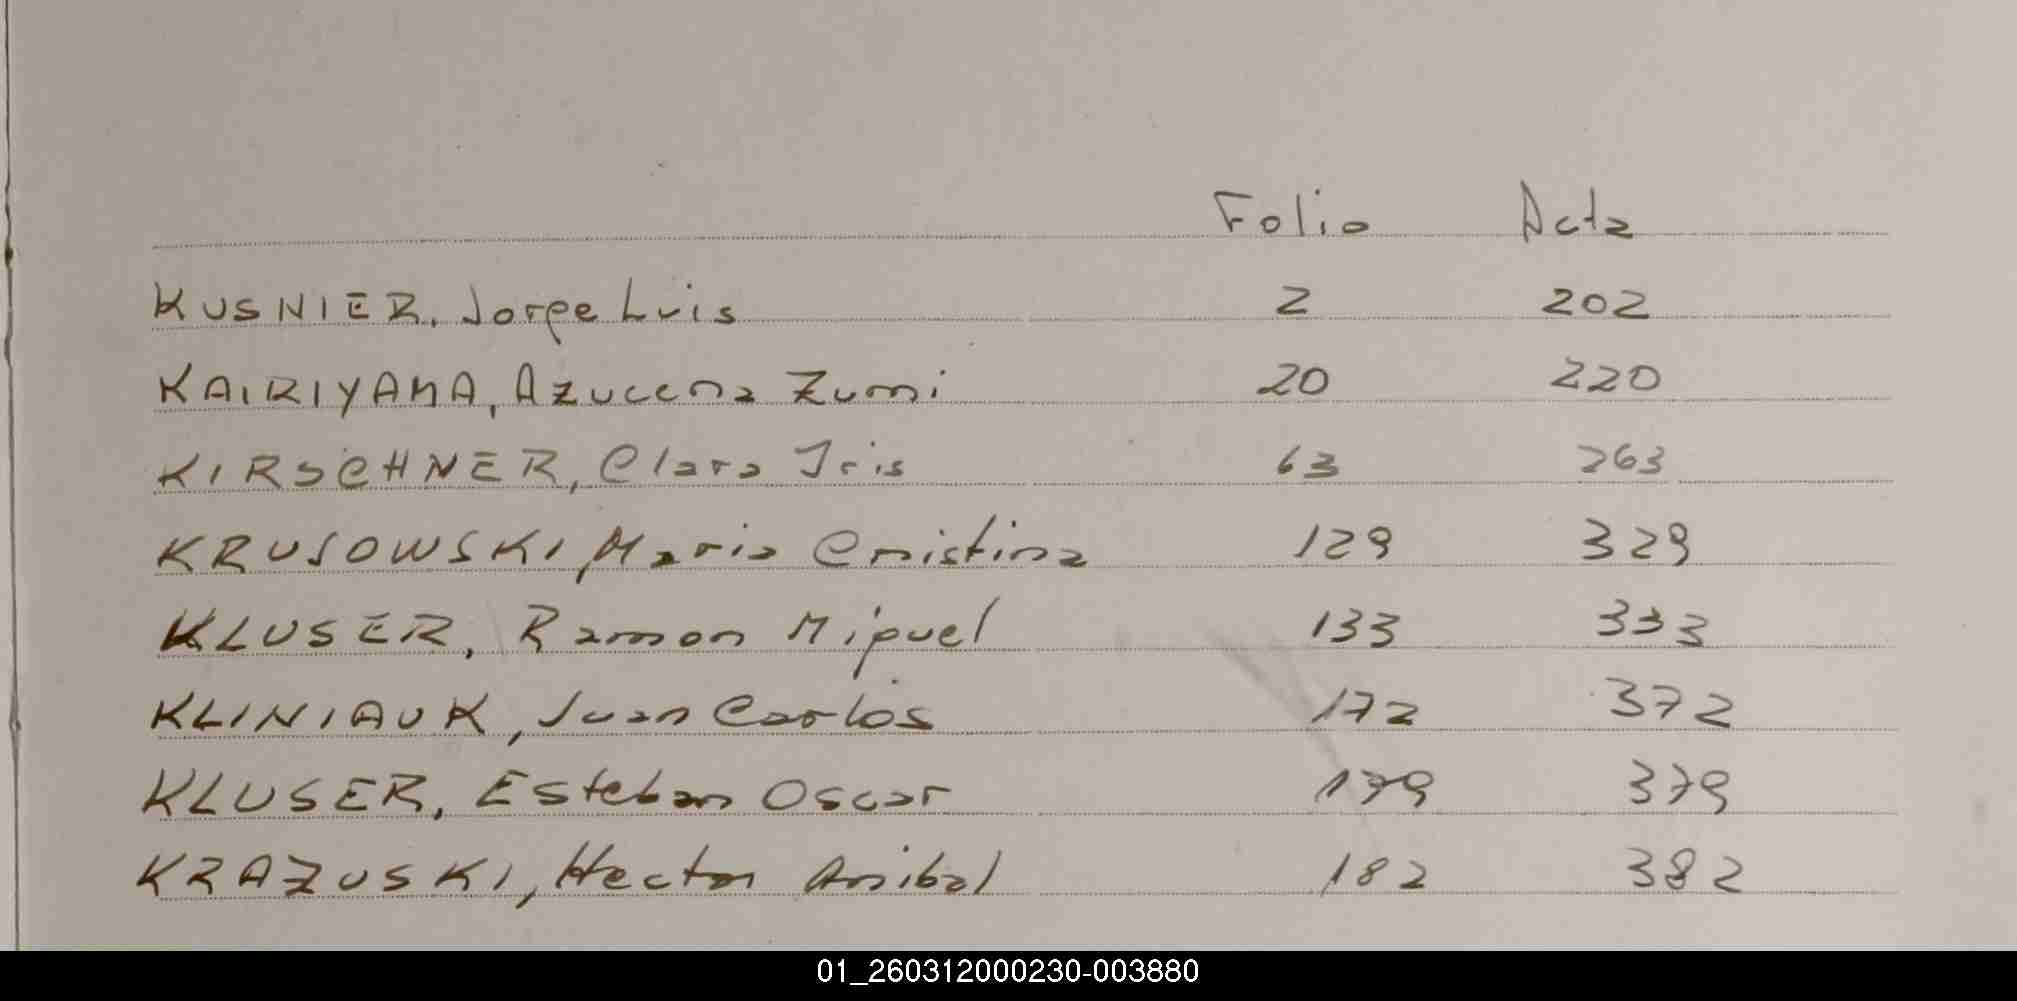 Folio Acta
KUSNIER, Jorge Luis 2 202
KAIRIYAMA, Azucena Zumi 20 220
KIRSCHNER, Clara Iris 63 263
KRUSOWSKI, Maria Cristina 129 329
KLUSER, Ramon Miguel 133 333
KLINIAUK, Juan Carlos 172 372
KLUSER, Esteban Oscar 179 379
KRAZUSKI, Hector Anibal 182 382
01_260312000230-003880